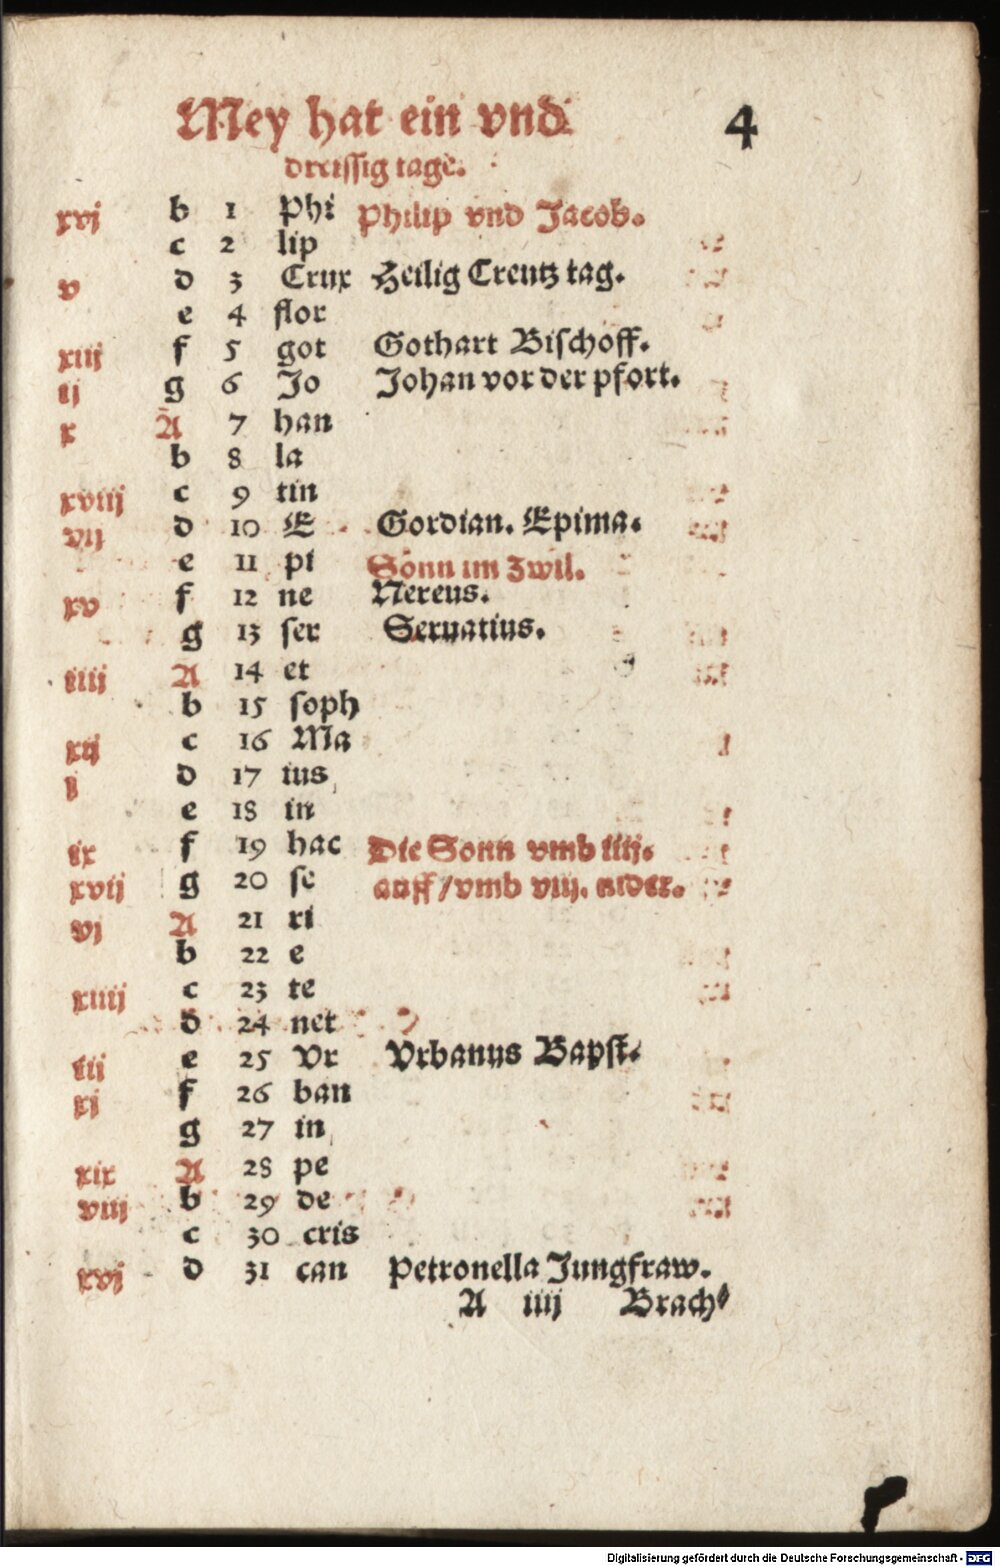 Mey hat ein vnd 4
dreissig tage.
xvj b 1 Phi Philip vnd Jacob.
c 2 lip
v d 3 Crux Heilig Creutz tag.
e 4 flor
xiij f 5 got Gothart Bischoff.
ij g 6 Jo Johan vor der pfort.
x A 7 han
b 8 la
xviij c 9 tin
vij d 10 E Gordian. Epima.
e 11 pi Sonn im Zwil.
xv f 12 ne Nereus.
g 13 ser Seruatius.
iiij A 14 et
b 15 soph
xij c 16 Ma
j d 17 ius
e 18 in
ix f 19 hac Die Sonn vmb iiij.
xvij g 20 se auff / vmb viij. nider.
vj A 21 ri
b 22 e
xiiij c 23 te
d 24 net
iij e 25 Vr Vrbanus Bapst.
xj f 26 ban
g 27 in
xix A 28 pe
viij b 29 de
c 30 cris
xvj d 31 can Petronella Jungfraw.
A iiij Brach⸗
Digitalisierung gefördert durch die Deutsche Forschungsgemeinschaft - DFG